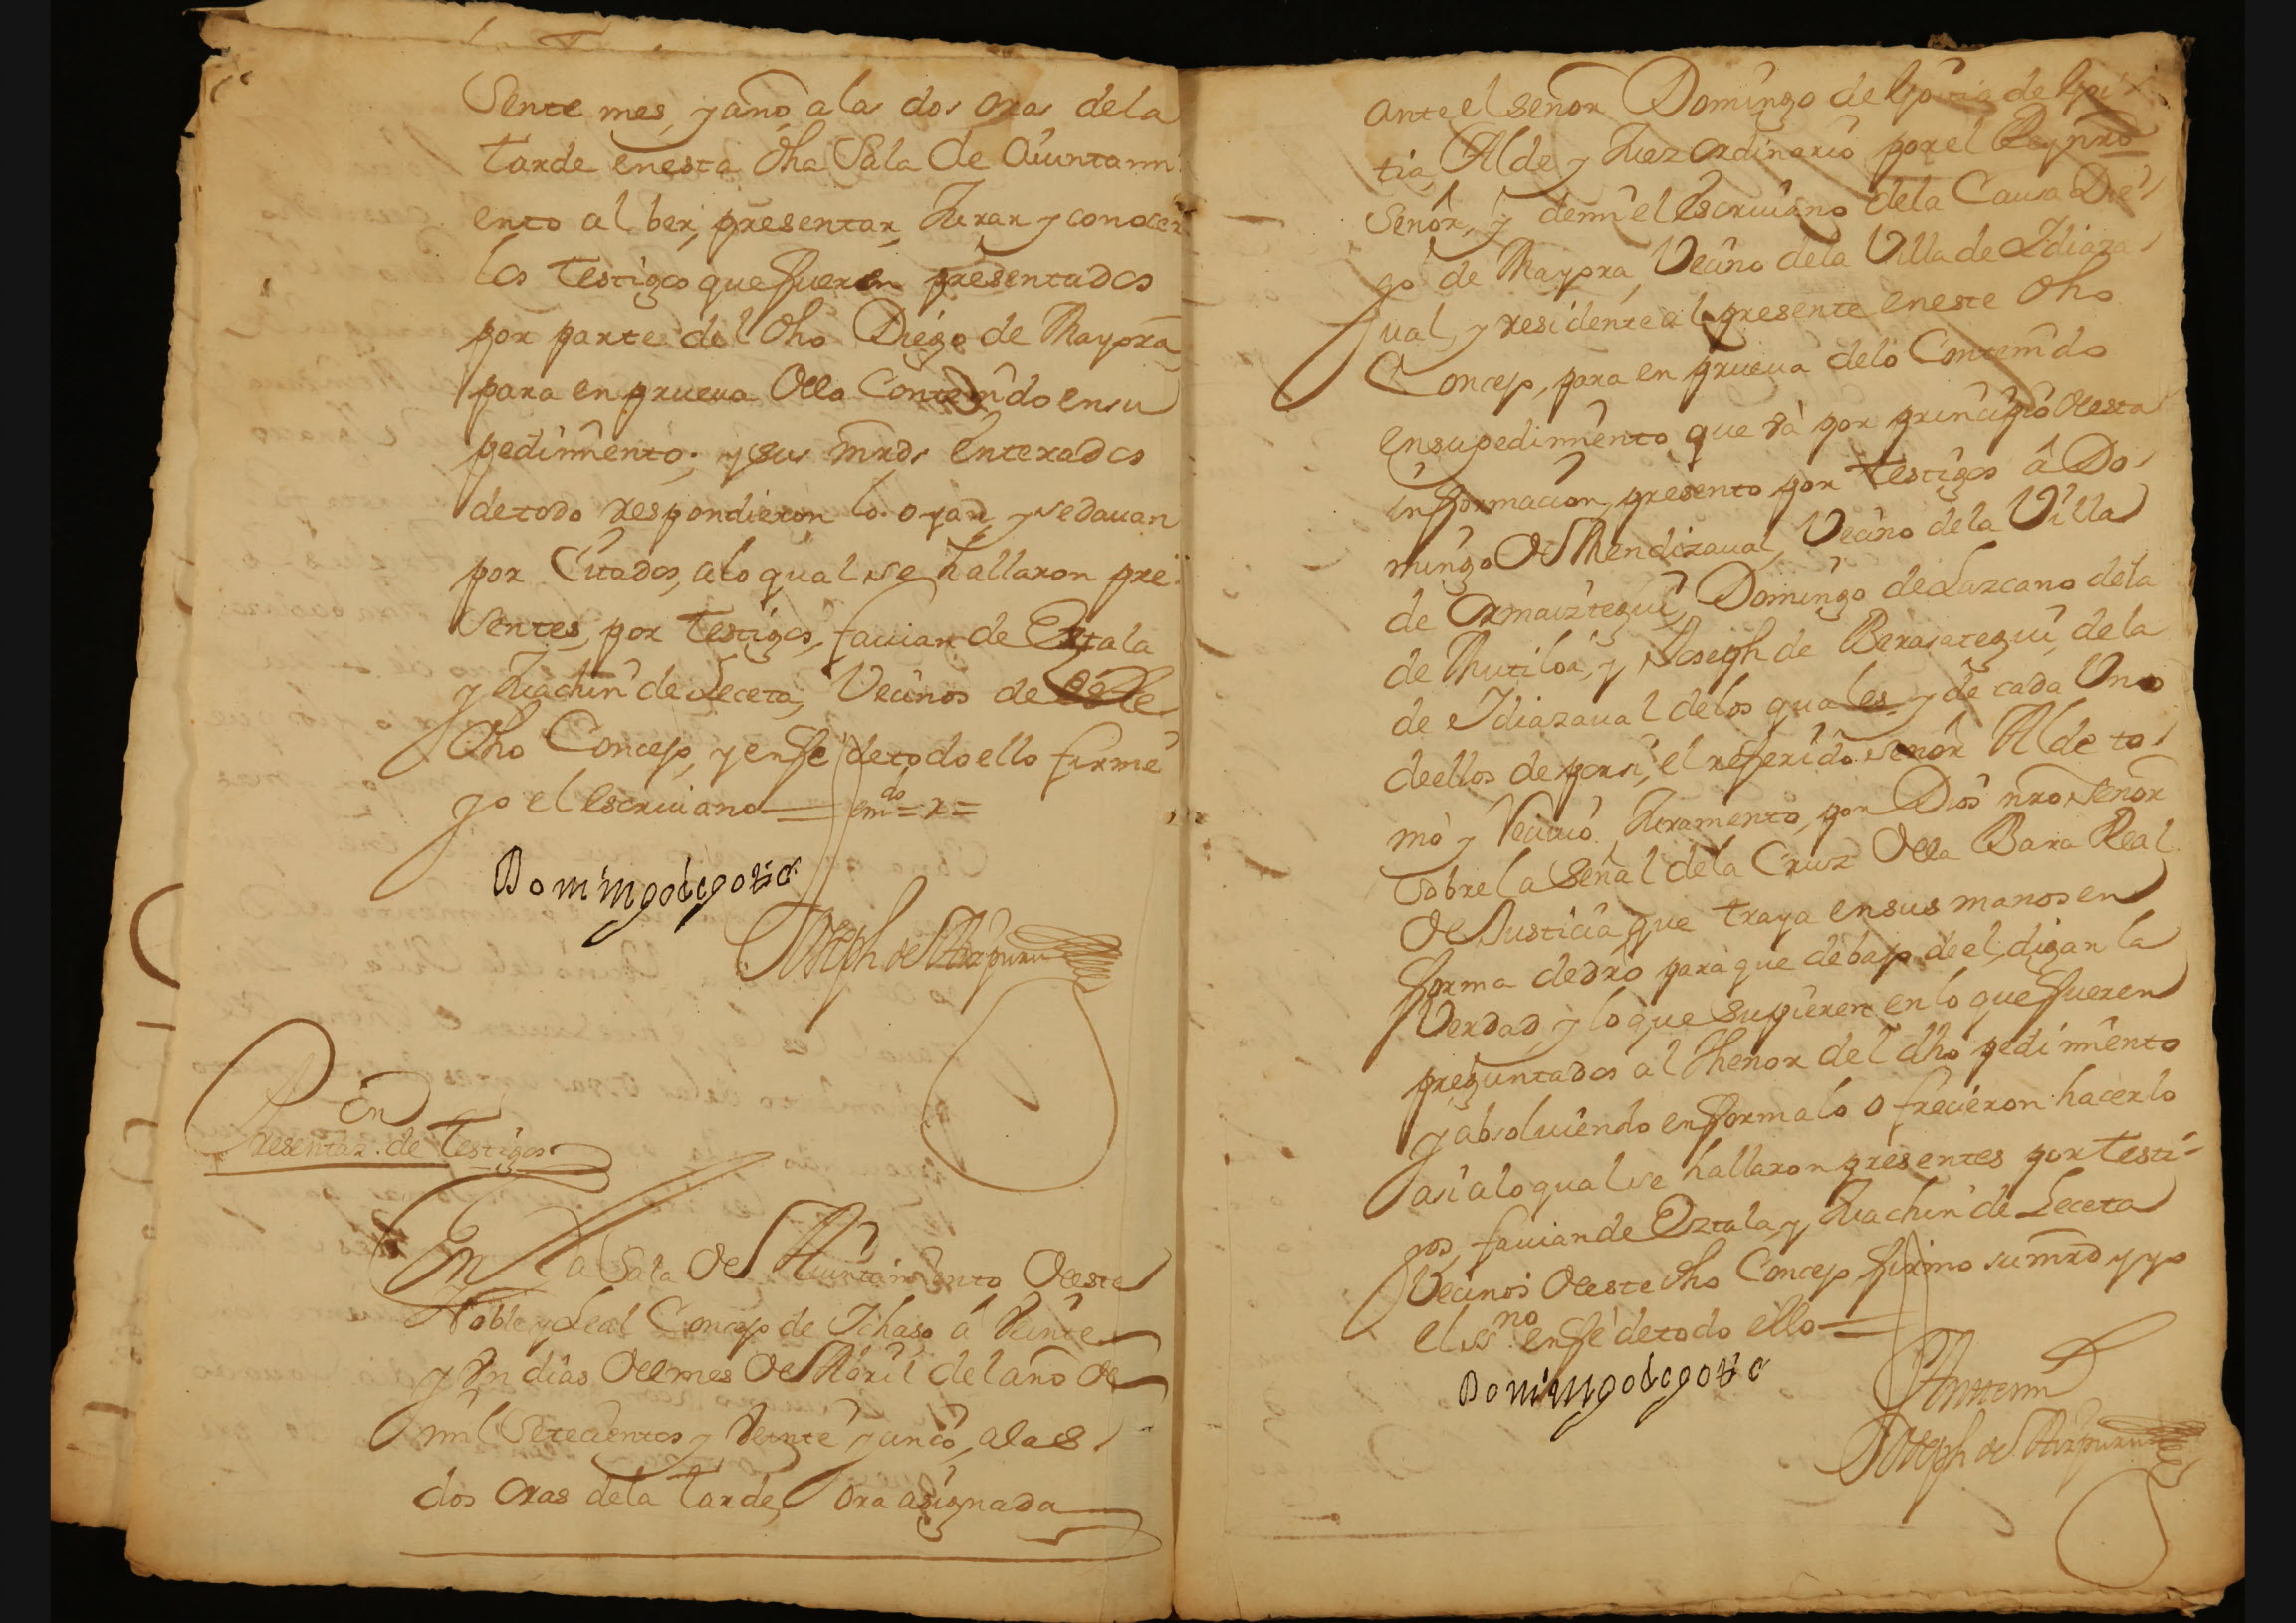 sente mes, y año, a las dos oras de la
tarde en esta dha Sala de Aiuntami
ento al ber, presentar, Jurar y conocer
los testigos que fueren presentados
por parte del dho Diego de Mayora
para en prueva de lo Contenido en su
pedimiento; y sus mrds enterados
de todo respondieron lo oyan, y se davan
por Citados, a lo qual se hallaron pre
sentes, por testigos, favian de Oztala
y Juachin de Leceta, Vecinos de este
dho Concejo, y en fe de todo ello firmé
yo el escrivano = emdo = x =
Domingo de goitia
Joseph de Aizpuru
En
Presentaz. de Testigos
En la Sala de Aiuntamiento de este
Noble y Leal Concejo de Ichaso á Veinte
y Un dias del mes de Abril del año de
mil setecientos y Veinte y cinco, a las
dos oras de la tarde, ora asignada
ante el señor Domingo de Goitia de Goi
tia, Alde y Juez ordinario por el Rey nro
Señor, y de mi el escrivano de la Causa Die
go de Mayora, Vecino de la Villa de Idiaza
val, y residente al presente en este dho
Concejo, para en prueva de lo Contenido
en su pedimiento que vá por principio de esta
informacion, presento por testigos á Do
mingo de Mendizaval, Vecino de la Villa
de Ormaiztegui, Domingo de Lazcano de la
de Mutiloa, y Joseph de Berasategui, de la
de Idiazaval de los quales y de cada Uno
de ellos de por si, el referido señor Alde to
mó y recivió Juramento, por Dios nro señor
sobre la señal de la Cruz de la Bara Real
de Justicia que traya en sus manos en
forma de dro para que debajo de el, digan la
Verdad, y lo que supieren en lo que fueren
preguntados al thenor del dho pedimiento
y absolviendo en forma lo ofrecieron hacerlo
asi a lo qual se hallaron presentes por testi-
gos, favian de Oztala, y Juachin de Leceta
Vecinos de este dho Concejo firmo su mrd y yo
el ssno en fe de todo ello
Domingo de goitia
Ante mi
Joseph de Aizpuru